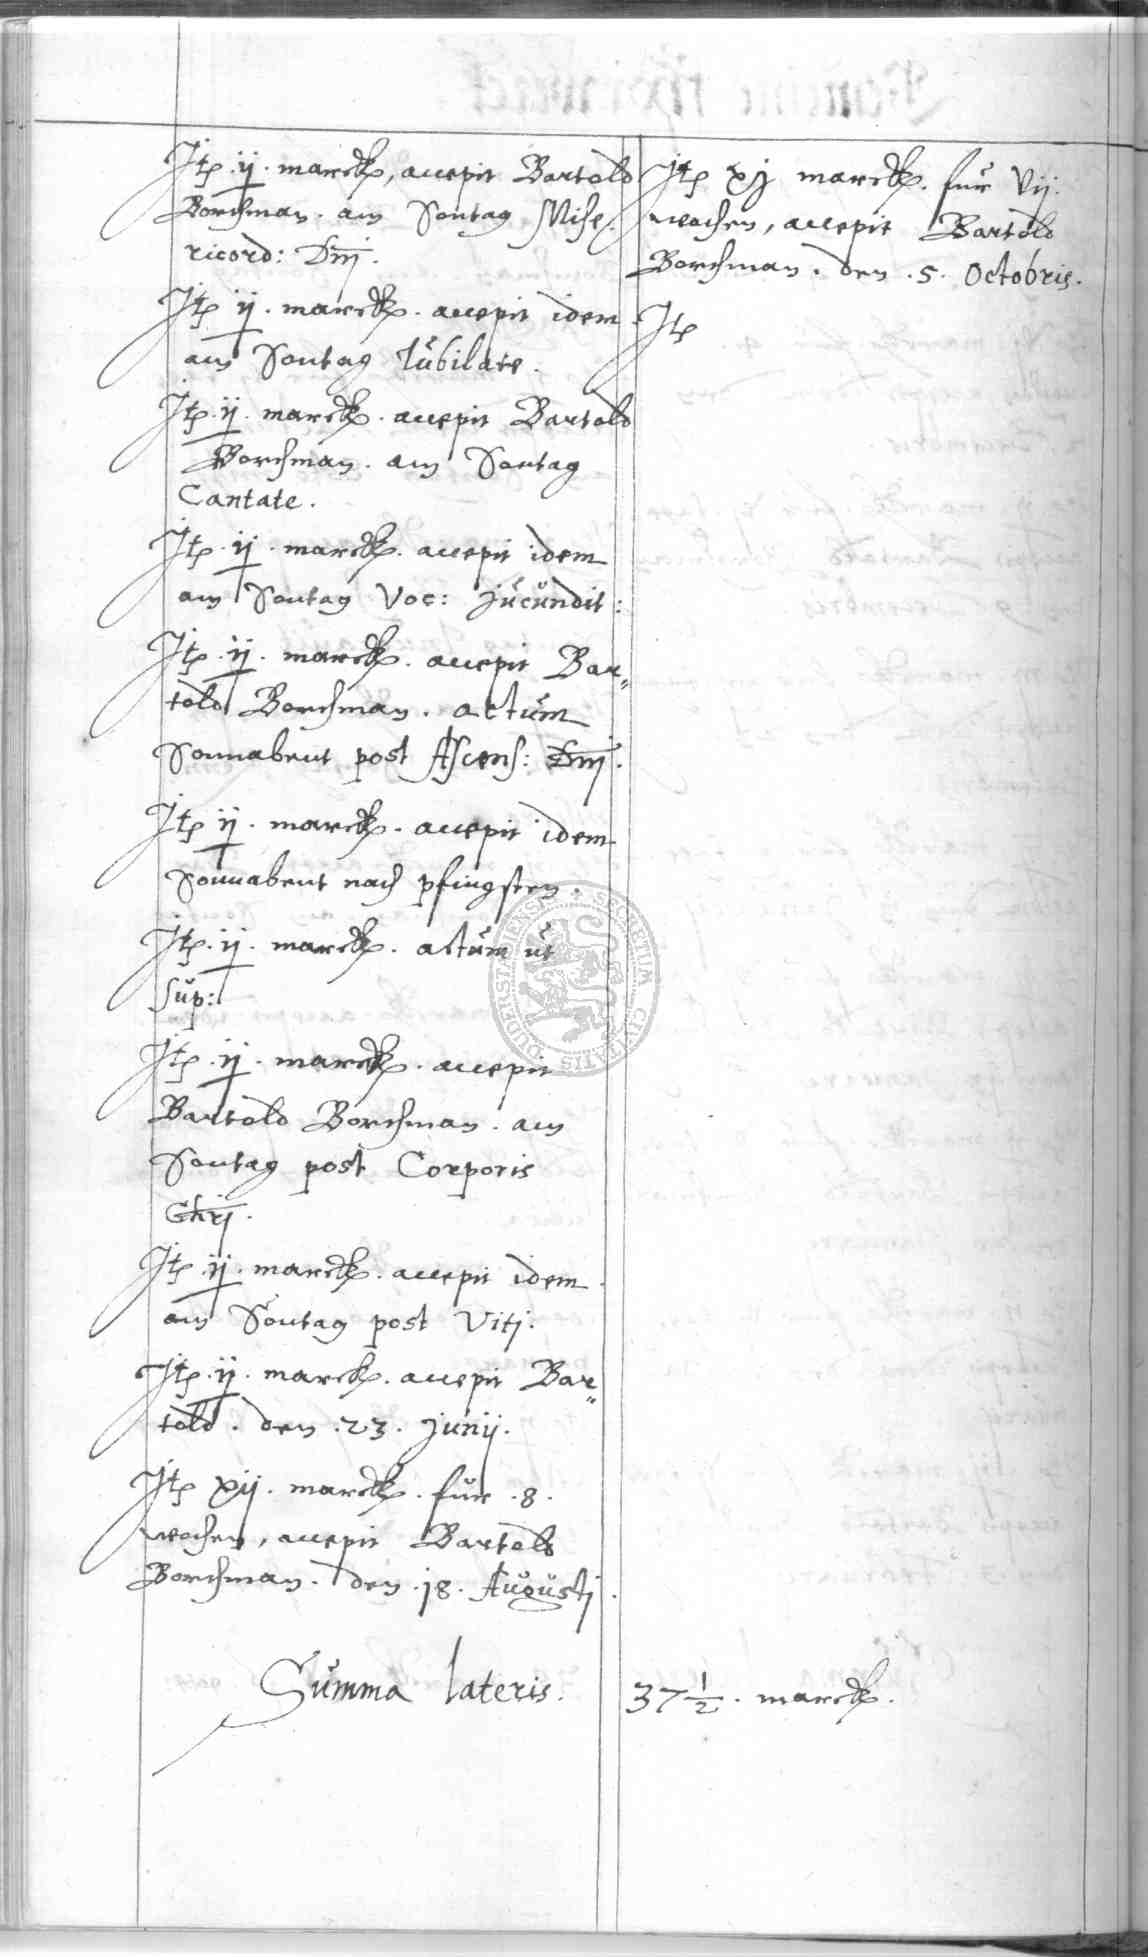 Itp ij. marck, accepit Bartold
Borchman. am Sontag Mise,
ricord: Dnj.
Itp ij. marck. accepit idem
am Sontag Iubilate.
Itp. ij. marck. accepit Bartold
Borchman. am Sontag
Cantate.
Itp. ij. marck. accepit idem
am Sontag Voc: Jucundit:
Itp. ij. marck. accepit Bar„
told Borchman. actum
Sonnabent post Ascens: Dnj.
Itp ij. marck. accepit idem
Sonnabent nach pfingsten.
Itp. ij. marck. actum ut
sup:
Itp. ij. marck. accepit
Bartold Borchman. am
Sontag post Corporis
Chrj.
Itp. ij. marck. accepit idem
am Sontag post Vitj.
Itp. ij. marck. accepit Bar„
told. den .23. Junij.
Itp xij. marck. für .8.
wochen, accepit Bartold
Borchman. den .18. Augustj.
Itp xj marck. für Vij.
wochen, accepit Bartold
Borchman. den .5. Octobris.
Itp
Summa lateris. 37 1/2. marck.
SECRETUM CIVITATIS DUDERSTADIENSIS